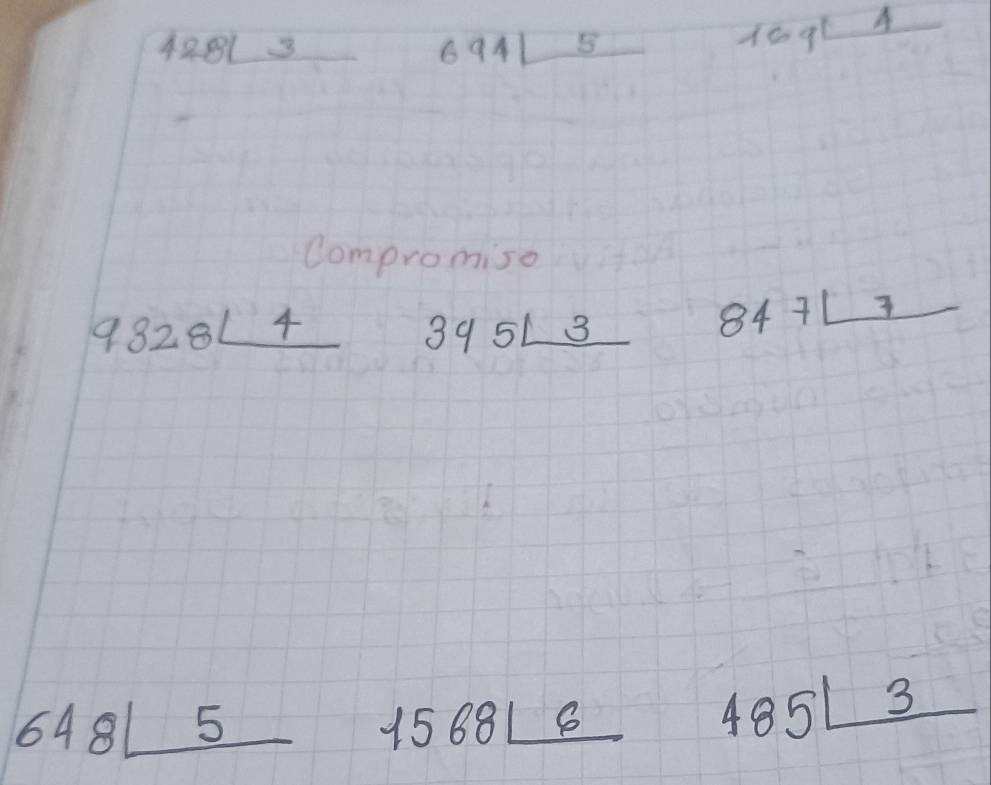 428 3 694 5 169 4
Compromiso
9328 4 395 3 847 7
648 5 1568 6 485 3